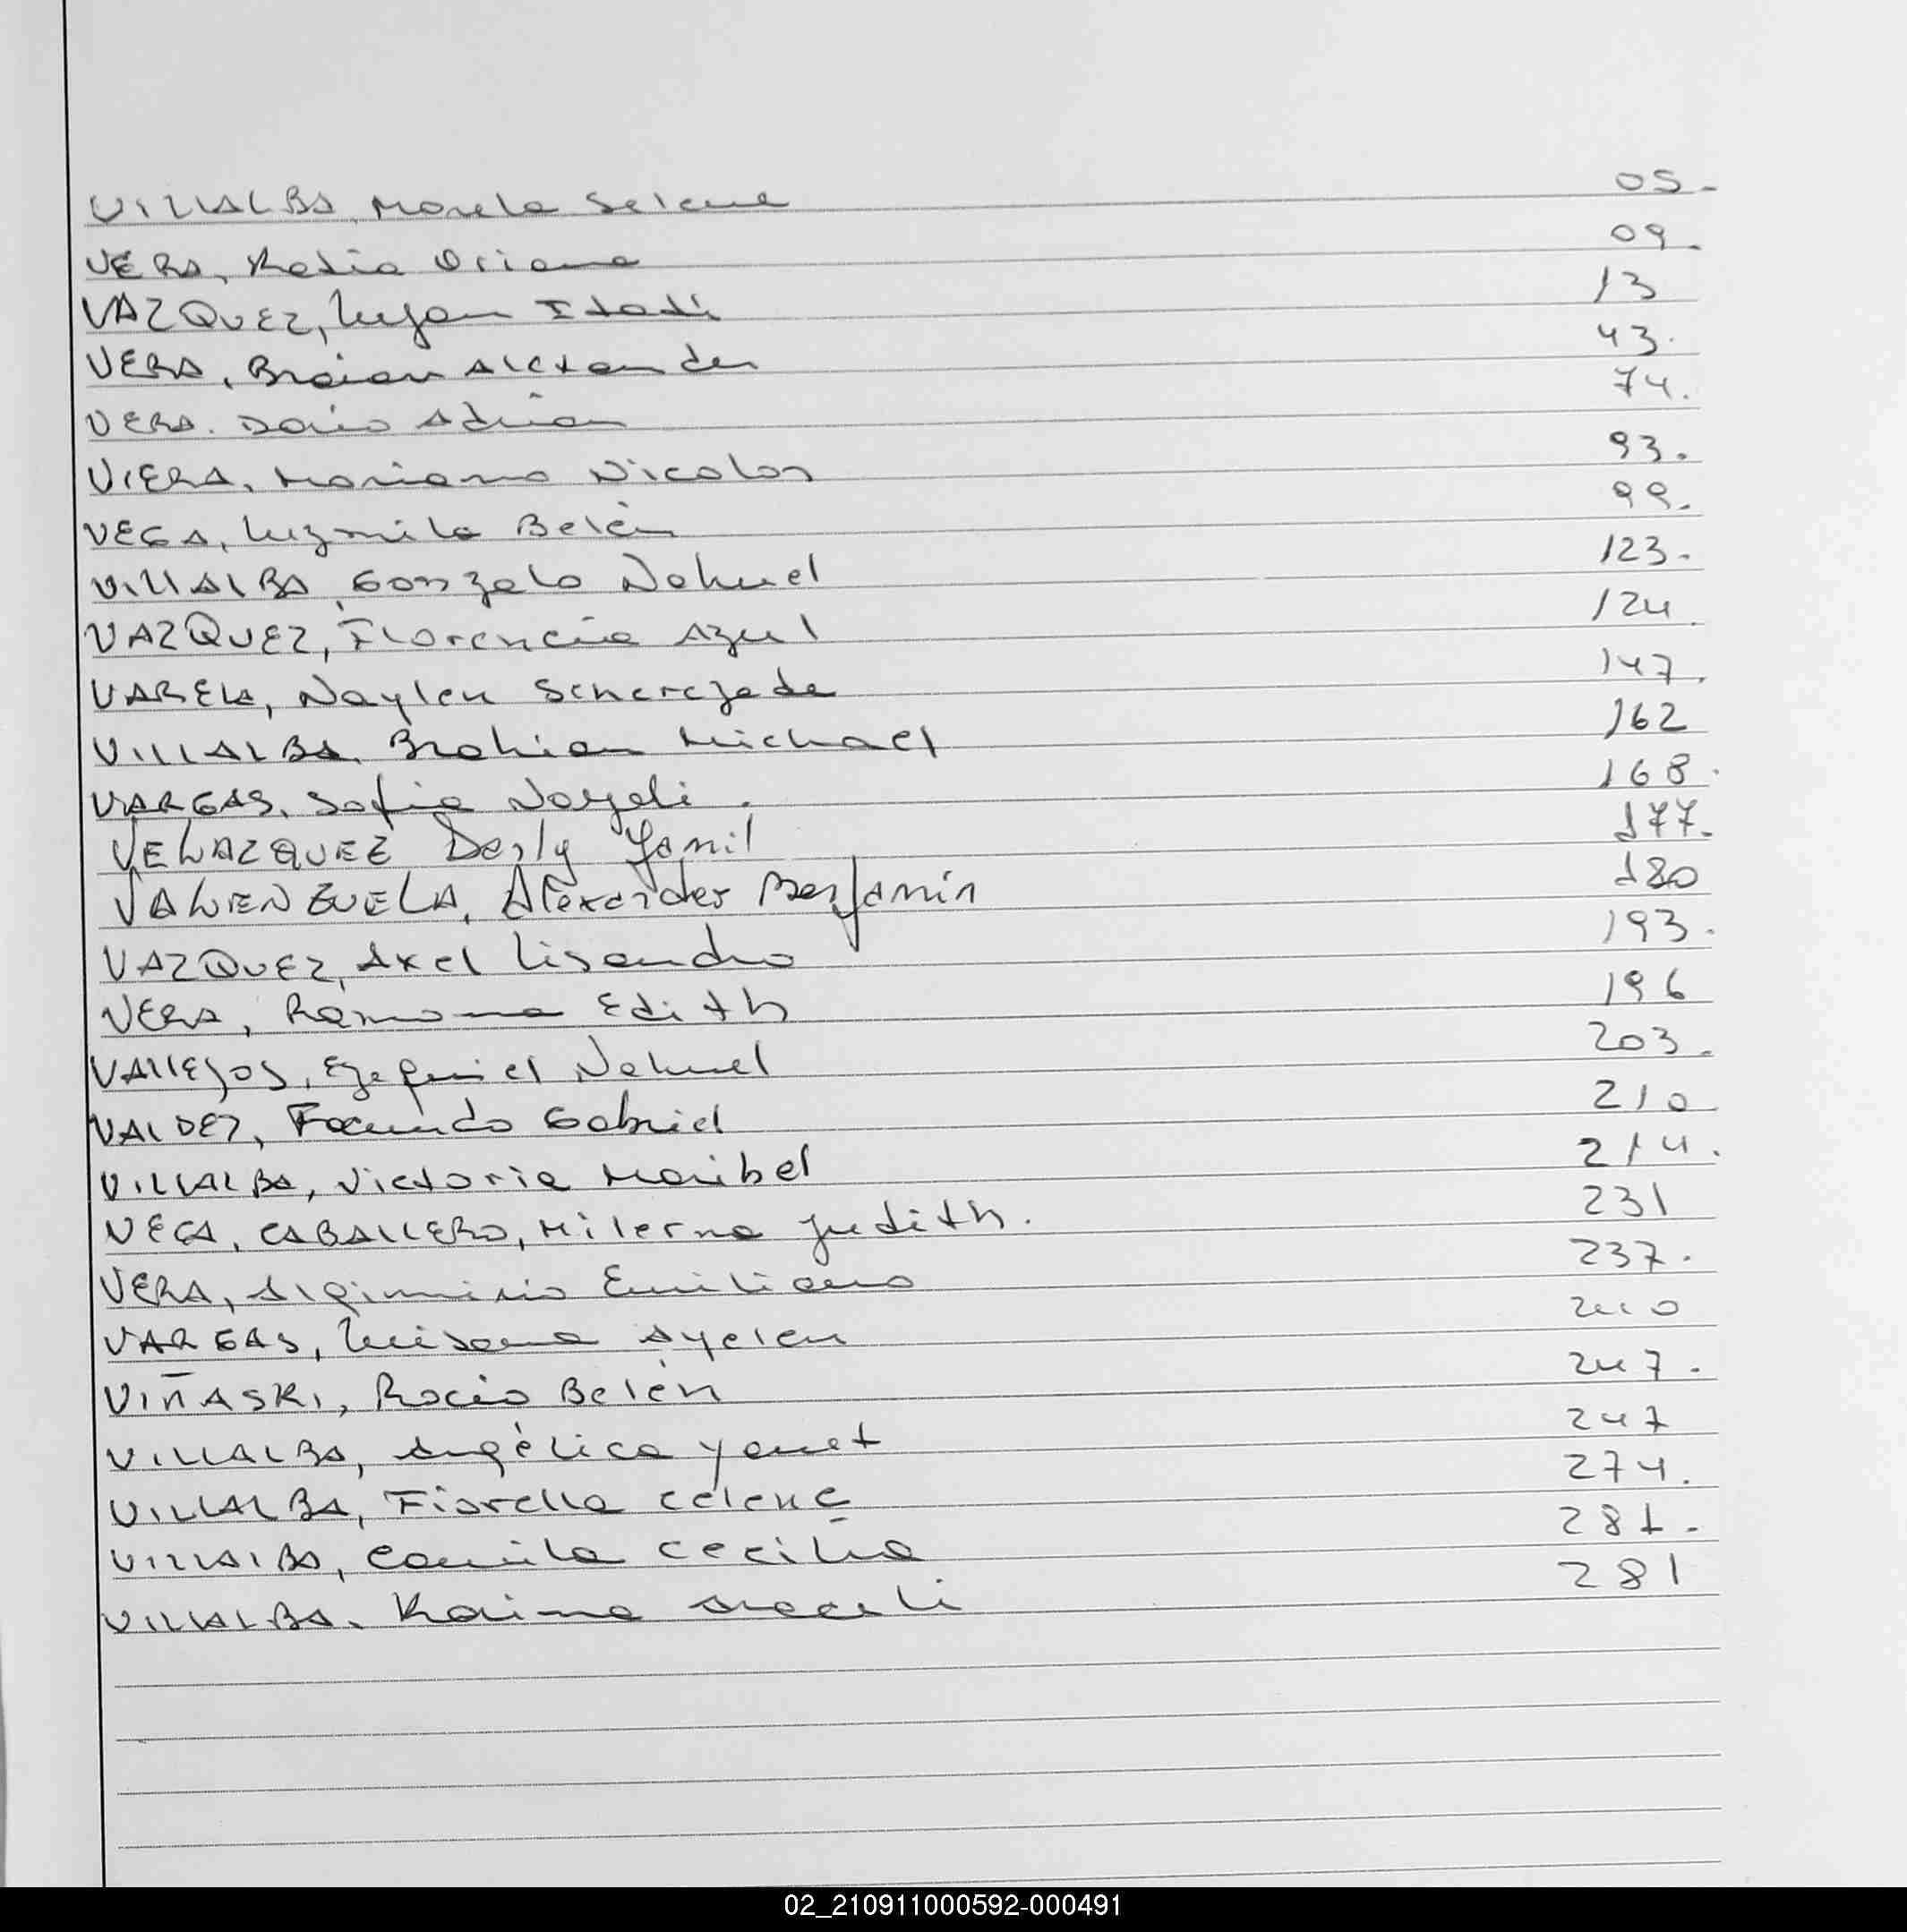 VILLALBA, Morela Selene 05.
VERA, Katia Oriana 09.
VAZQUEZ, Lujan Itatí 13
VERA, Braian Alexander 43.
VERA. Dario Adrian 74.
VIERA, Mariano Nicolas 93.
VEGA, Luzmila Belén 99.
VILLALBA, Gonzalo Nahuel 123.
VAZQUEZ, Florencia Azul 124.
VARELA, Naylen Scherezade 147.
VILLALBA, Brahian Michael 162
VARGAS, Sofia Nayeli. 168.
VELAZQUEZ Derly Yamil 177.
VALIENZUELA, Alexander Benjamin 180
VAZQUEZ, Axel Lisandro 193.
VERA, Ramona Edith 196
VALLEJOS, Ezequiel Nahuel 203.
VALDEZ, Facundo Gabriel 210
VILLALBA, Victoria Maribel 214.
VEGA, CABALLERO, Milerna Judith. 231
VERA, Argimirio Emiliano 237.
VARGAS, Luisana Ayelen 240
VIÑASKI, Rocio Belén 247.
VILLALBA, Angélica Yanet 247
VILLALBA, Fiorella Celene 274.
VILLALBA, Camila Cecilia 281.
VILLALBA. Karina Araceli 281
02_210911000592-000491